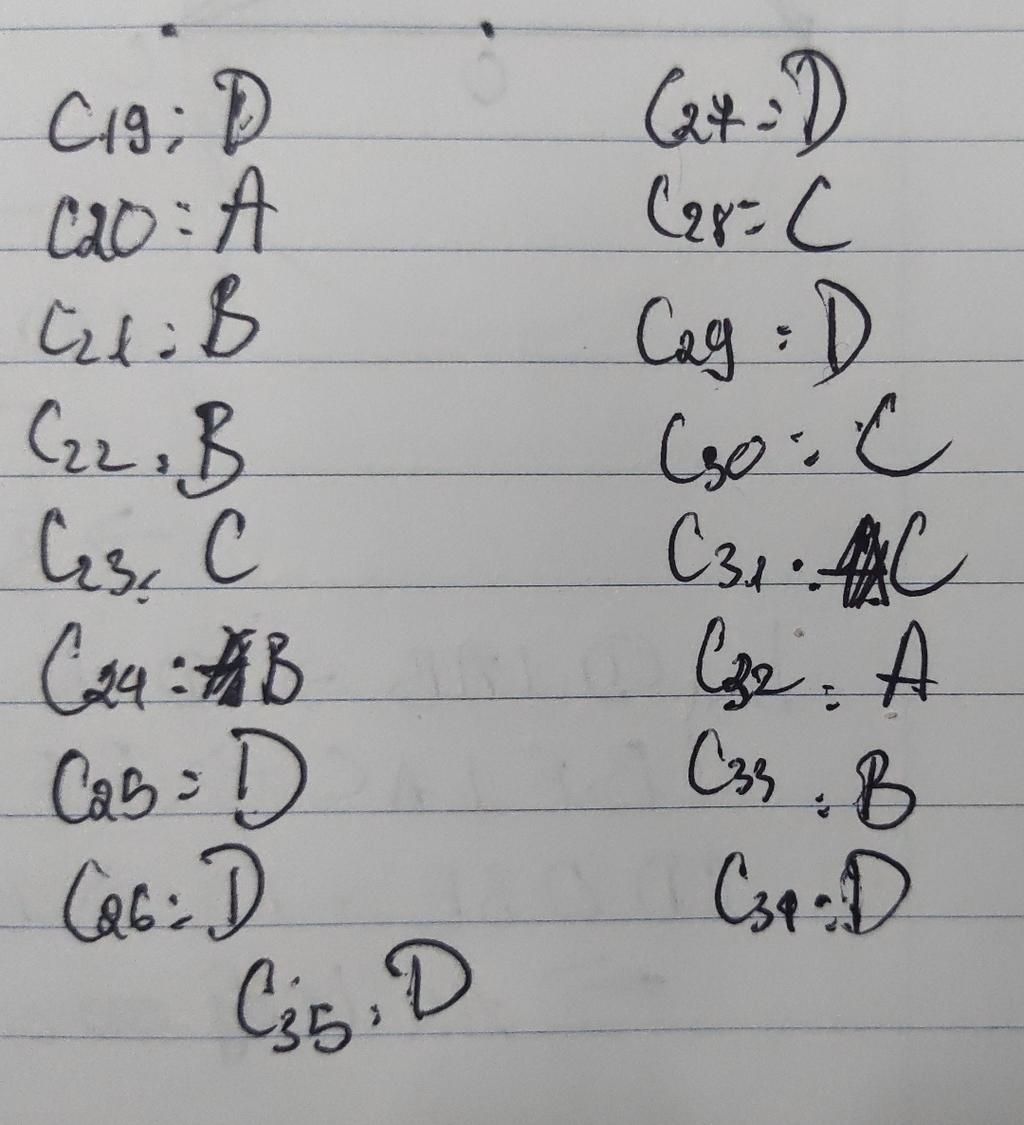 C19: D
C20: A
C21: B
C22: B
C23: C
C24: B
C25: D
C26: D
C27: D
C28: C
C29: D
C30: C
C31: C
C32: A
C33: B
C34: D
C35: D